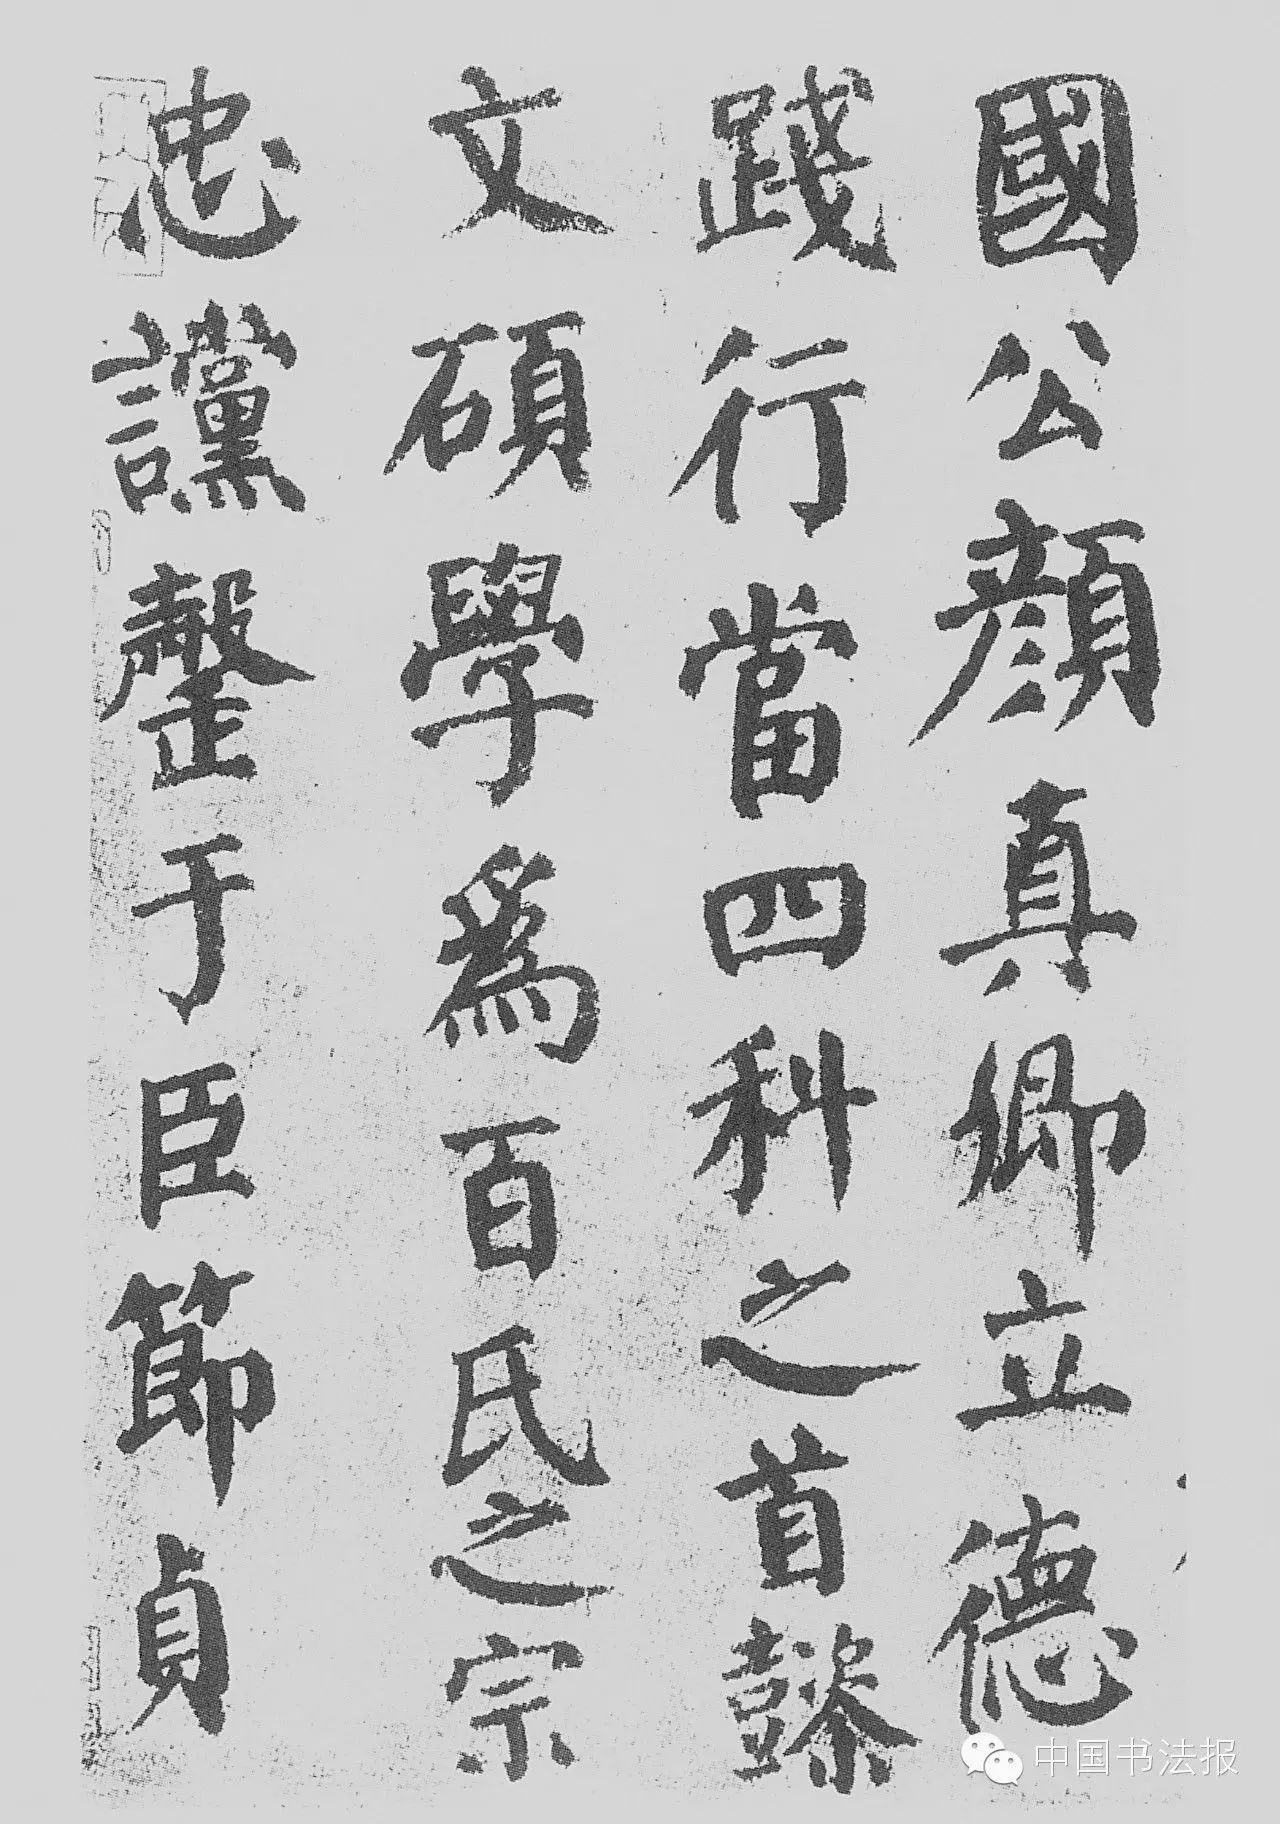 國公顏真卿立德
踐行當四科之首懿
文碩學為百氏之宗
忠讜罄于臣節貞
中国书法报